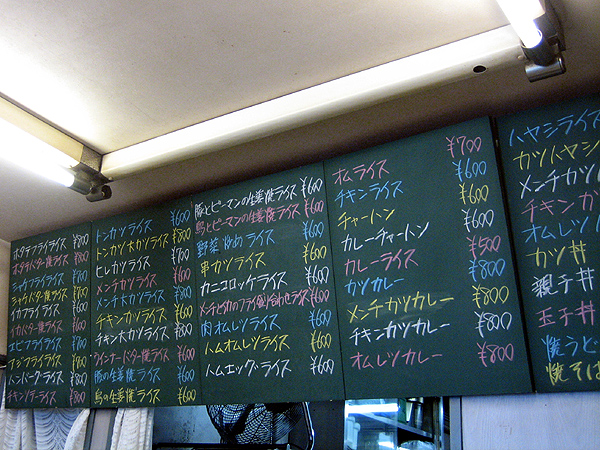 ホタテフライライス ¥800
ホタテバター焼ライス ¥800
シャケフライライス ¥700
シャケバター焼ライス ¥700
イカフライライス ¥600
イカバター焼ライス ¥600
エビフライライス ¥700
アジフライライス ¥700
ハンバーグ・ライス ¥800
チキンソテーライス ¥800
トンカツライス ¥600
トンカツ大カツライス ¥800
ヒレカツライス ¥700
メンチカツライス ¥600
メンチ大カツライス ¥800
チキンカツライス ¥600
チキン大カツライス ¥800
ウインナーバター焼ライス ¥600
豚の生姜焼ライス ¥600
鳥の生姜焼ライス ¥600
豚とピーマンの生姜焼ライス ¥600
鳥とピーマンの生姜焼ライス ¥600
野菜炒めライス ¥600
串カツライス ¥600
カニコロッケライス ¥600
メンチとイカのフライ盛り合わせライス ¥600
肉オムレツライス ¥600
ハムオムレツライス ¥600
ハムエッグ・ライス ¥600
オムライス ¥700
チキンライス ¥600
チャートン ¥600
カレーチャートン ¥600
カレーライス ¥500
カツカレー ¥800
メンチカツカレー ¥800
チキンカツカレー ¥800
オムレツカレー ¥800
ハヤシライス
カツハヤシ
メンチカツ
チキンカ
オムレツ
カツ丼
親子丼
玉子丼
焼うど
焼そば